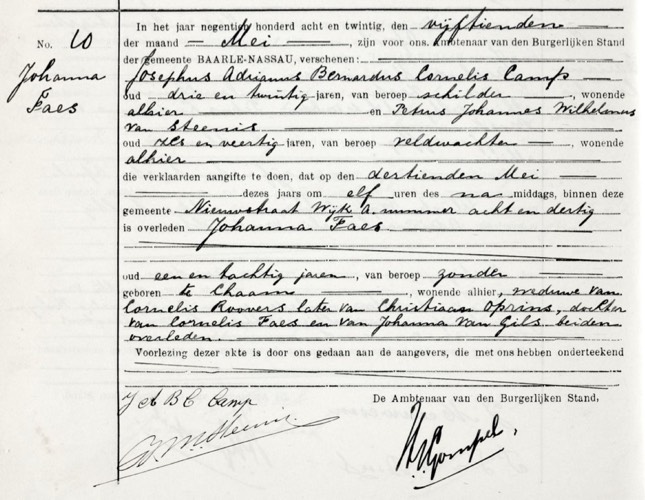 In het jaar negentien honderd acht en twintig, den vijftienden
No. 10
der maand Mei, zijn voor ons. Ambtenaar van den Burgerlijken Stand
der gemeente BAARLE-NASSAU, verschenen:
Johanna
Faes
Josephus Adrianus Bernardus Cornelis Camp
oud drie en twintig jaren, van beroep schilder, wonende
alhier en Petrus Johannes Wilhelmus
van Steenis
oud zes en veertig jaren, van beroep veldwachter, wonende
alhier
die verklaarden aangifte te doen, dat op den dertienden Mei
dezes jaars om elf uren des na middags, binnen deze
gemeente Nieuwstraat Wijk A. nummer acht en dertig
is overleden Johanna Faes
oud een en tachtig jaren, van beroep zonder
geboren te Chaam, wonende alhier, weduwe van
Cornelis Roovers later van Christiaan Oprins, dochter
van Cornelis Faes en van Johanna van Gils. beiden
overleden.
Voorlezing dezer akte is door ons gedaan aan de aangevers, die met ons hebben onderteekend
De Ambtenaar van den Burgerlijken Stand,
J A B C Camp